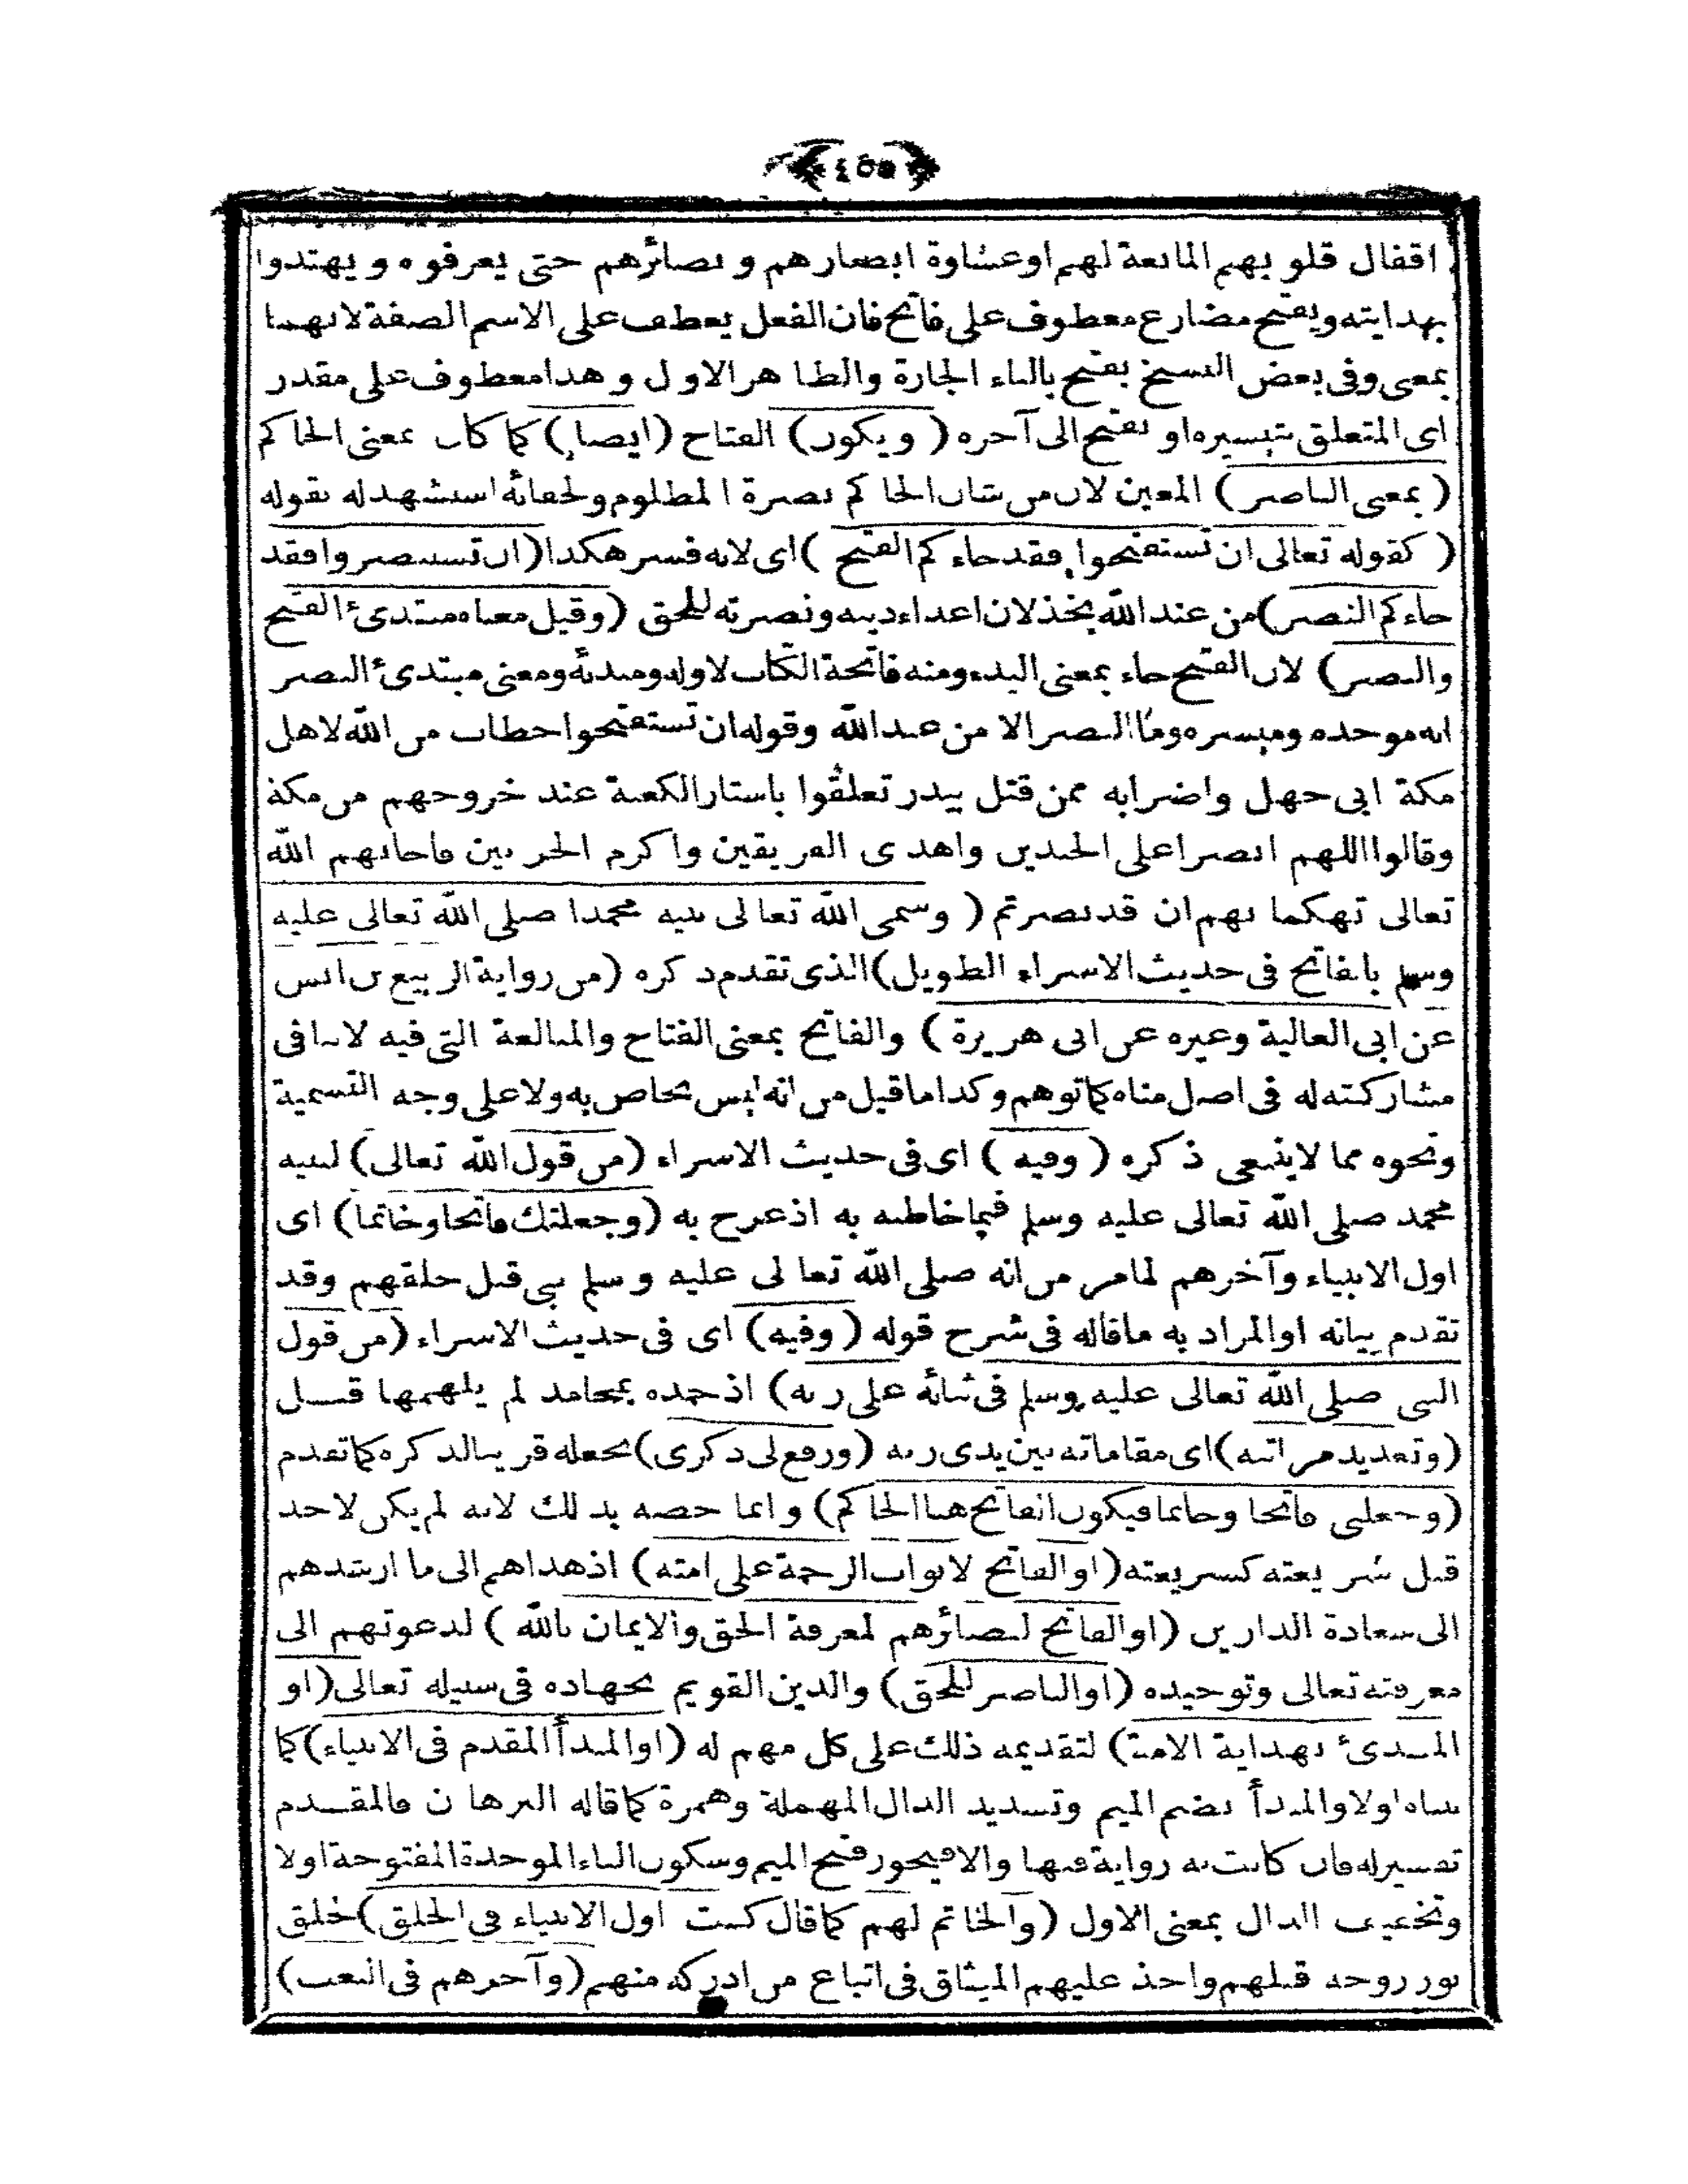 ٤٥٥
اقفال قلوبهم المانعة لهم او غشاوة ابصارهم و بصائرهم حتى يعرفوه و يهتدوا
بهدايته ويفتح مضارع معطوف على فاتح فان الفعل يعطف على الاسم الصفة لانهما
بمعنى وفى بعض النسخ بفتح بالباء الجارة والظاهر الاول وهذا معطوف على مقدر
اى المتعلق بتيسيره او بفتح الى آخره ( ويكون ) الفتاح ( ايضا ) كما كان بمعنى الحاكم
( بمعنى الناصر ) المعين لان من شان الحاكم نصرة المظلوم ولخفائه استشهد له بقوله
( كقوله تعالى ان تستفتحوا فقد جاءكم الفتح ) اى لانه فسر هكذا ( ان تستنصروا فقد
جاءكم النصر ) من عند الله بخذلان اعداء دينه ونصرته للحق ( وقيل معناه مبتدئ الفتح
والنصر ) لان الفتح جاء بمعنى البدء ومنه فاتحة الكتاب لاوله ومبدئه ومعنى مبتدئ النصر
انه موحده وميسره وما النصر الا من عند الله وقوله ان تستفتحوا خطاب من الله لاهل
مكة ابى جهل واضرابه ممن قتل ببدر تعلقوا باستار الكعبة عند خروجهم من مكة
وقالوا اللهم انصر اعلى الجندين واهدى الفريقين واكرم الحزبين فاجابهم الله
تعالى تهكما بهم ان قد نصرتم ( وسمى الله تعالى نبيه محمدا صلى الله تعالى عليه
وسلم بالفاتح فى حديث الاسراء الطويل ) الذى تقدم ذكره ( من رواية الربيع بن انس
عن ابى العالية وغيره عن ابى هريرة ) والفاتح بمعنى الفتاح والمبالغة التى فيه لا تنافى
مشاركته له فى اصل معناه كما توهم وكذا ما قيل من انه ليس بخاص به ولا على وجه التسمية
ونحوه مما لا ينبغى ذكره ( وفيه ) اى فى حديث الاسراء ( من قول الله تعالى ) لنبيه
محمد صلى الله تعالى عليه وسلم فيما خاطبه به اذ عرج به ( وجعلتك فاتحا وخاتما ) اى
اول الانبياء وآخرهم لما مر من انه صلى الله تعالى عليه وسلم نبى قبل خلقهم وقد
تقدم بيانه او المراد به ما قاله فى شرح قوله ( وفيه ) اى فى حديث الاسراء ( من قول
النبى صلى الله تعالى عليه وسلم فى ثنائه على ربه ) اذ حمده بمحامد لم يلهمها قبل
( وتعديد مراتبه ) اى مقاماته بين يدى ربه ( ورفع لى ذكرى ) بجعله قرينا لذكره كما تقدم
( وجعلنى فاتحا وخاتما فيكون الفاتح هنا الحاكم ) وانما خصه بذلك لانه لم يكن لاحد
قبل شريعته كشريعته ( او الفاتح لابواب الرحمة على امته ) اذ هداهم الى ما ارشدهم
الى سعادة الدارين ( او الفاتح لبصائرهم لمعرفة الحق والايمان بالله ) لدعوتهم الى
معرفته تعالى وتوحيده ( او الناصر للحق ) والدين القويم بجهاده فى سبيله تعالى ( او
المبتدئ بهداية الامة ) لتقديمه ذلك على كل مهم له ( او المبدأ المقدم فى الانبياء ) كما
بيناه اولا والمبدأ بضم الميم وتشديد الدال المهملة وهمزة كما قاله البرهان فالمقدم
تفسير له فان كانت به رواية فبها والا فيجوز فتح الميم وسكون الباء الموحدة المفتوحة اولا
وتخفيف الدال بمعنى الاول ( والخاتم لهم كما قال كنت اول الانبياء فى الخلق ) خلق
نور روحه قبلهم واخذ عليهم الميثاق فى اتباع من ادركه منهم ( وآخرهم فى البعث )